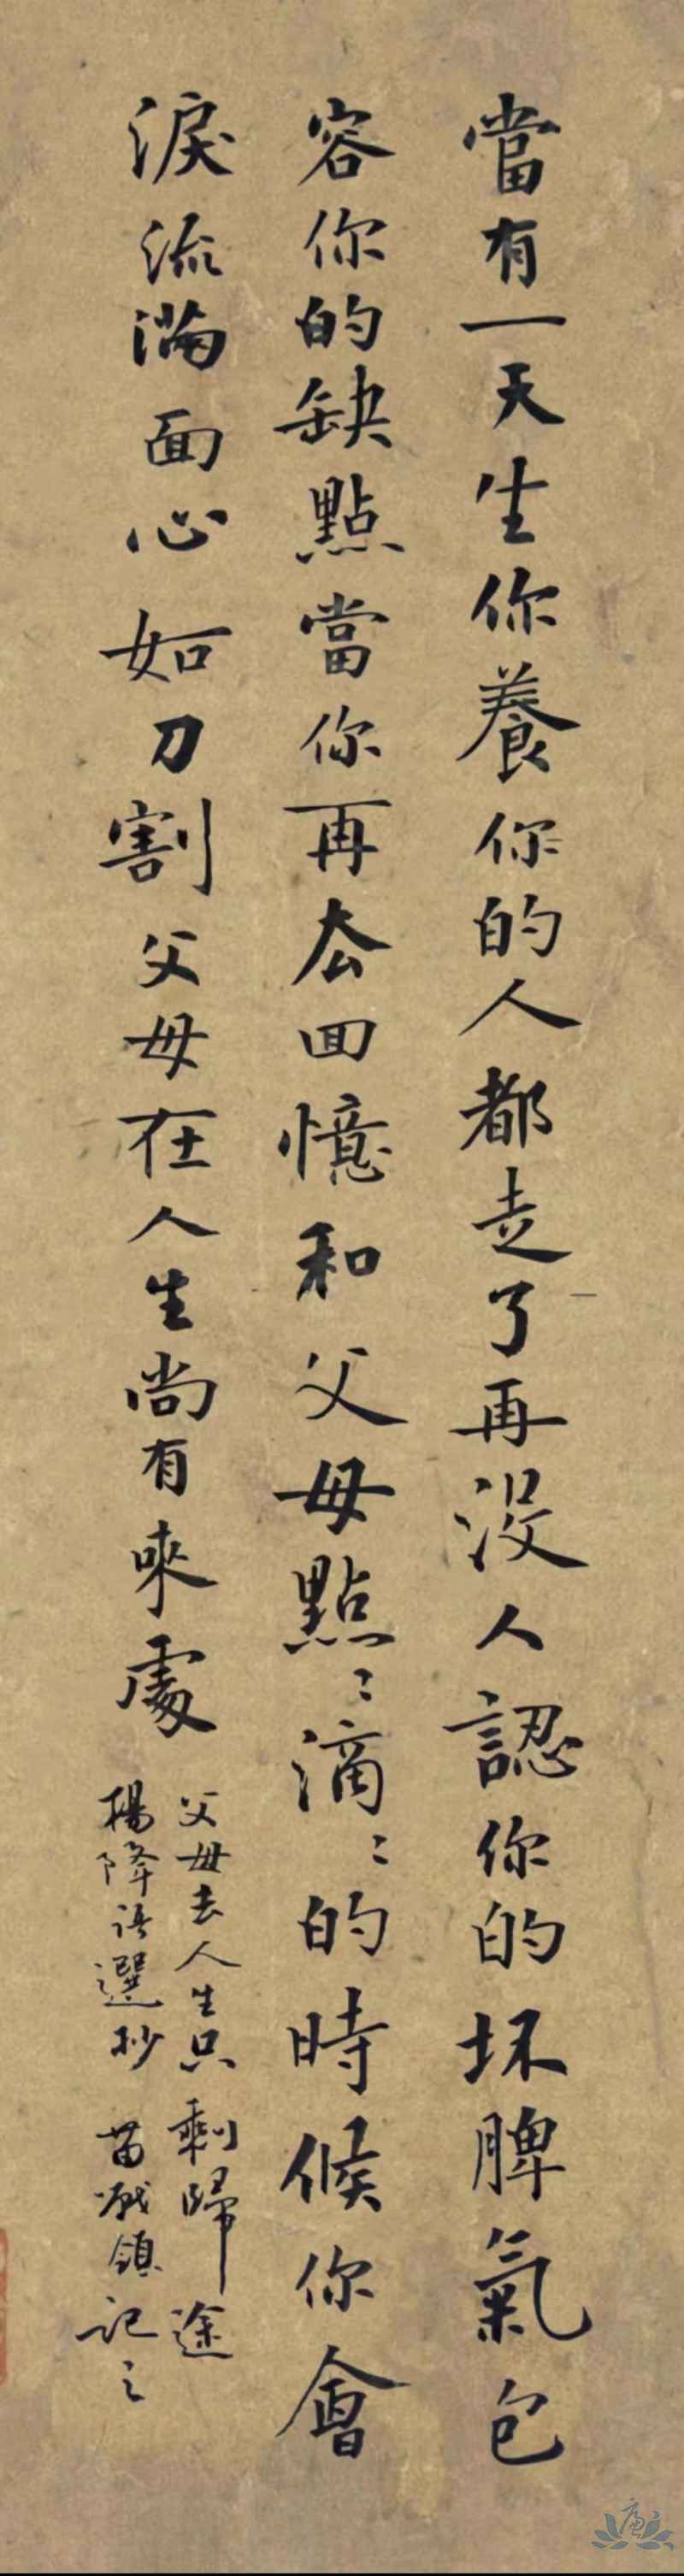 當有一天生你養你的人都走了再沒人認你的坏脾氣包
容你的缺點當你再去回憶和父母點〻滴〻的時候你會
淚流滿面心如刀割父母在人生尚有來處
父母去人生只剩歸途
楊降语選抄 苗 領記之
廉